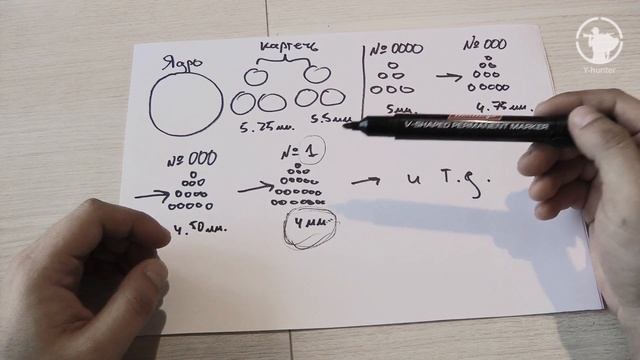 Ядро
картечь
5.25мм.
5.5мм
№ 0000
5мм.
№ 000
4.75 мм.
№ 000
4.50 мм.
№ 1
4 мм.
и т.д.
V-SHAPED PERMANENT MARKER
Y-hunter